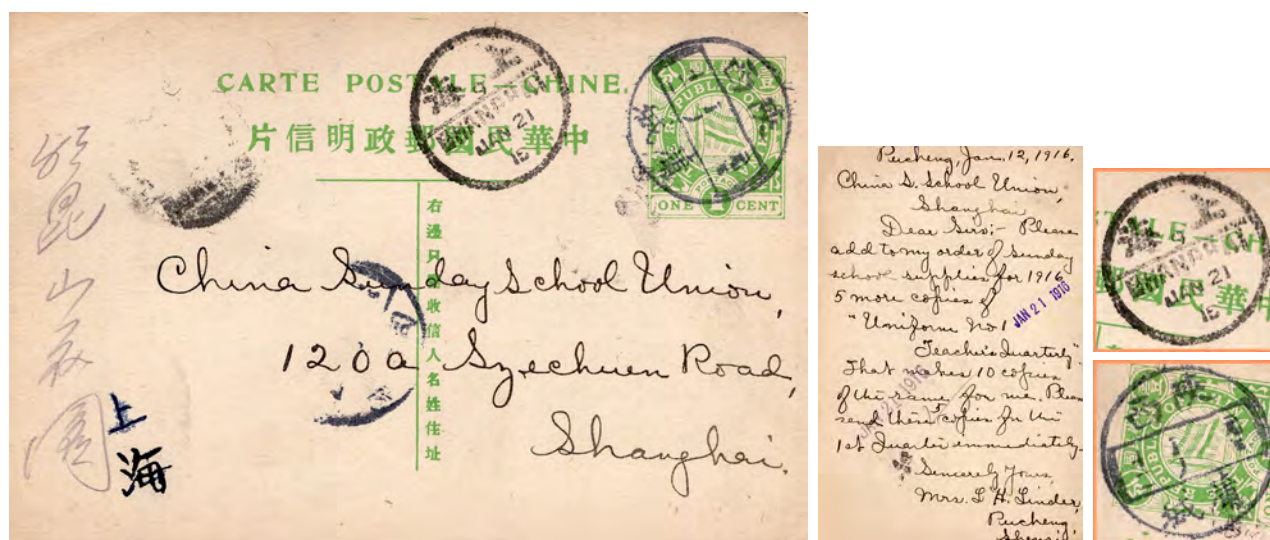 CARTE POSTALE—CHINE.
片信明政郵國民華中
SHANGHAI
JAN 21
上海
REPUBLIC OF
ONE 1 CENT
右邊只收信人名姓住址
China Sunday School Union,
120a Szechuen Road,
Shanghai.
崑山花園
上海
Pucheng, Jan. 12, 1916.
China S. School Union,
Shanghai
Dear Sirs:- Please
add to my order of Sunday
school supplies for 1916
5 more copies of
"Uniform No 1
Teacher's Quarterly"
That makes 10 copies
of the same for me. Please
send these 5 copies for the
1st Quarter immediately.
Sincerely Yours,
Mrs. L. H. Linder,
Pucheng,
Shensi
JAN 21 1916
JAN 21 1916
上海
SHANGHAI
JAN 21